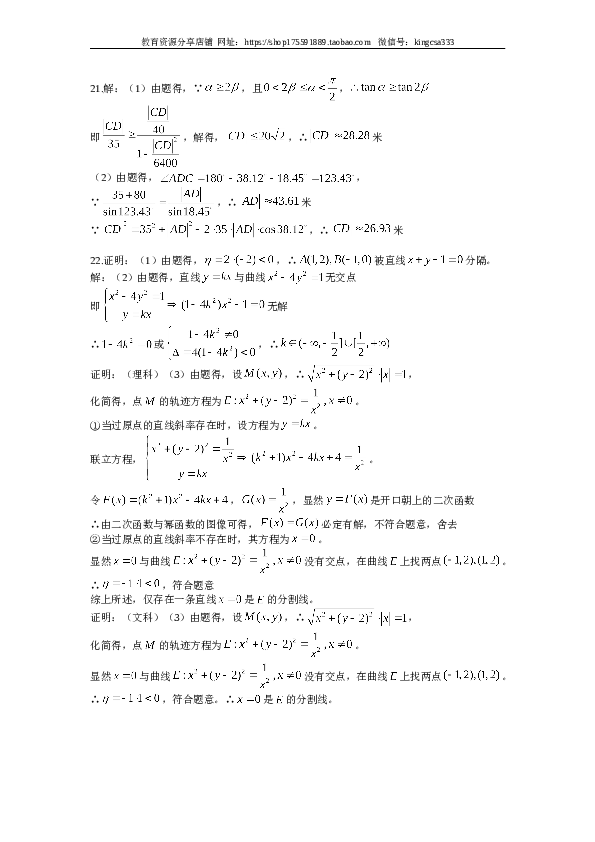 教育资源分享店铺 网址：https://shop175591889.taobao.com 微信号：kingcsa333
21.解：（1）由题得，∵α≥2β，且0<2β≤α<π/2，∴tanα≥tan2β
即 |CD|/35 ≥ (|CD|/40)/(1-|CD|²/6400)，解得，CD≤20√2，∴ CD≈28.28 米
（2）由题得，∠ADC=180-38.12-18.45=123.43°，
∵ (35+80)/sin123.43 = |AD|/sin18.45，∴ |AD|≈43.61米
∵ CD²=35²+AD²-2·35·AD·cos38.12°，∴ CD≈26.93 米
22.证明：（1）由题得，η=2·(-2)<0，∴A(1,2),B(-1,0)被直线x+y-1=0分隔。
解：（2）由题得，直线y=kx与曲线x²-4y²=1无交点
即 {x²-4y²=1, y=kx ⇒ (1-4k²)x²-1=0无解
∴1-4k²=0或{1-4k²≠0, Δ=4(1-4k²)<0，∴k∈(-∞,-1/2]∪[1/2,+∞)
证明：（理科）（3）由题得，设M(x,y)，∴√(x²+(y-2)²)·|x|=1，
化简得，点M的轨迹方程为E:x²+(y-2)²=1/x²,x≠0。
①当过原点的直线斜率存在时，设方程为y=kx。
联立方程，{x²+(y-2)²=1/x², y=kx ⇒ (k²+1)x²-4kx+4=1/x²。
令F(x)=(k²+1)x²-4kx+4，G(x)=1/x²，显然y=F(x)是开口朝上的二次函数
∴由二次函数与幂函数的图像可得，F(x)=G(x)必定有解，不符合题意，舍去
②当过原点的直线斜率不存在时，其方程为x=0。
显然x=0与曲线E:x²+(y-2)²=1/x²,x≠0没有交点，在曲线E上找两点(-1,2),(1,2)。
∴η=-1·1<0，符合题意
综上所述，仅存在一条直线x=0是E的分割线。
证明：（文科）（3）由题得，设M(x,y)，∴√(x²+(y-2)²)·|x|=1，
化简得，点M的轨迹方程为E:x²+(y-2)²=1/x²,x≠0。
显然x=0与曲线E:x²+(y-2)²=1/x²,x≠0没有交点，在曲线E上找两点(-1,2),(1,2)。
∴η=-1·1<0，符合题意。∴x=0是E的分割线。